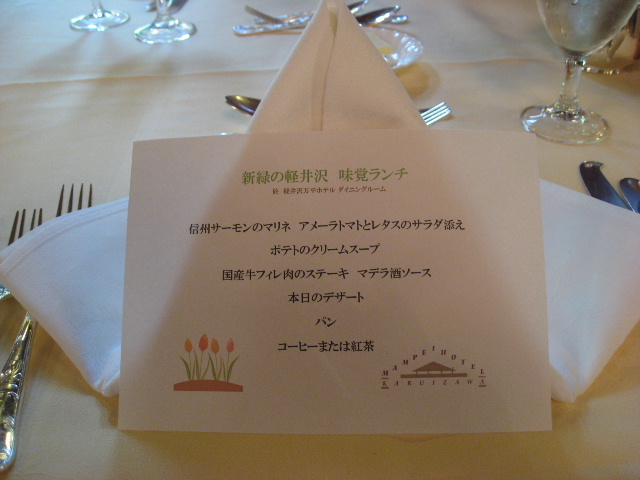 新緑の軽井沢　味覚ランチ
於 軽井沢万平ホテル ダイニングルーム
信州サーモンのマリネ　アメーラトマトとレタスのサラダ添え
ポテトのクリームスープ
国産牛フィレ肉のステーキ　マデラ酒ソース
本日のデザート
パン
コーヒーまたは紅茶
MAMPEI HOTEL
KARUIZAWA